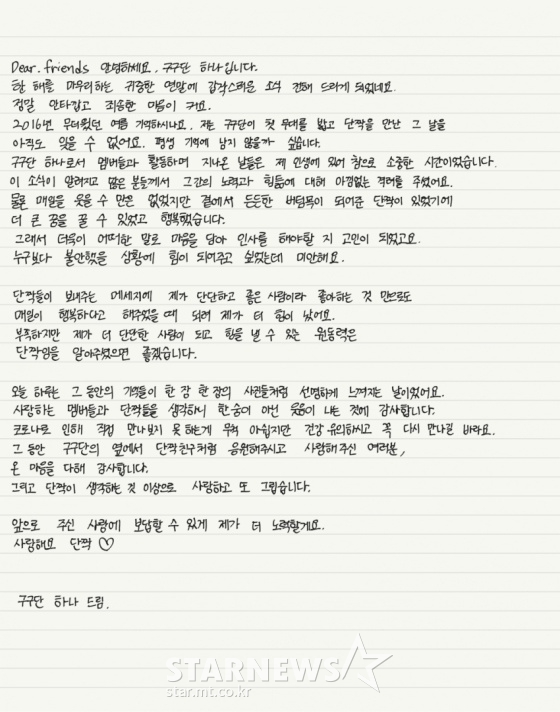 Dear. friends 안녕하세요. 구구단 하나입니다.
한 해를 마무리하는 귀중한 연말에 갑작스러운 소식 전해 드리게 되었네요.
정말 안타깝고 죄송한 마음이 커요.
2016년 무더웠던 여름 기억하시나요. 저는 구구단이 첫 무대를 밟고 단짝을 만난 그 날을
아직도 잊을 수 없어요. 평생 기억에 남지 않을까 싶습니다.
구구단 하나로서 멤버들과 활동하며 지나온 날들은 제 인생에 있어 참으로 소중한 시간이었습니다.
이 소식이 알려지고 많은 분들께서 그간의 노력과 힘듦에 대해 아낌없는 격려를 주셨어요.
물론 매일을 웃을 수 만은 없었지만 곁에서 든든한 버팀목이 되어준 단짝이 있었기에
더 큰 꿈을 꿀 수 있었고 행복했습니다.
그래서 더욱이 어떠한 말로 마음을 담아 인사를 해야할 지 고민이 되었고요.
누구보다 불안했을 상황에 힘이 되어주고 싶었는데 미안해요.
단짝들이 보내주는 메세지에 제가 단단하고 좋은 사람이라 좋아하는 것 만으로도
매일이 행복하다고 해주었을 때 되려 제가 더 힘이 났어요.
부족하지만 제가 더 단단한 사람이 되고 힘을 낼 수 있는 원동력은
단짝임을 알아주셨으면 좋겠습니다.
오늘 하루는 그 동안의 기억들이 한 장 한 장의 사진들처럼 선명하게 느껴지는 날이었어요.
사랑하는 멤버들과 단짝들을 생각하니 한숨이 아닌 웃음이 나는 것에 감사합니다.
코로나로 인해 직접 만나보지 못하는게 무척 아쉽지만 건강 유의하시고 꼭 다시 만나길 바라요.
그 동안 구구단의 옆에서 단짝친구처럼 응원해주시고 사랑해주신 여러분,
온 마음을 다해 감사합니다.
그리고 단짝이 생각하는 것 이상으로 사랑하고 또 그립습니다.
앞으로 주신 사랑에 보답할 수 있게 제가 더 노력할게요.
사랑해요 단짝 ♡
구구단 하나 드림.
STARNEWS
star.mt.co.kr